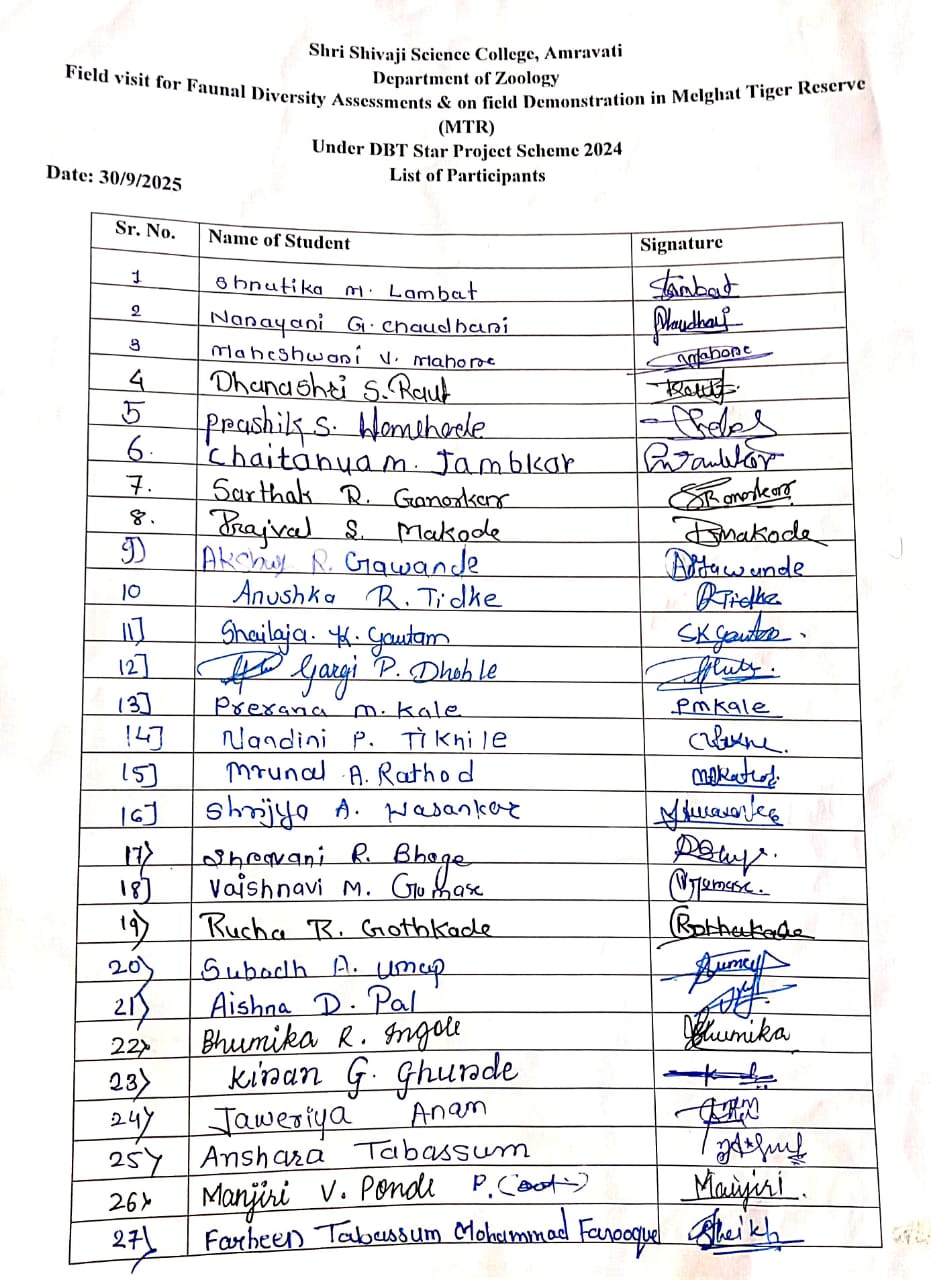 Shri Shivaji Science College, Amravati
Department of Zoology
Field visit for Faunal Diversity Assessments & on field Demonstration in Melghat Tiger Reserve
(MTR)
Under DBT Star Project Scheme 2024
Date: 30/9/2025 List of Participants
Sr. No. Name of Student Signature
1 Shrutika M. Lambat
2 Narayani G. Chaudhari
3 Maheshwari V. Mahore Mahore
4 Dhanashri S. Raut Raut
5 Prashik S. Womehode
6. Chaitanya M. Jambkar
7. Sarthak R. Ganorkar
8. Prajval S. Makode Makode
9) Akshay R. Gawande
10 Anushka R. Tidke RTidke
11] Shailaja. K. Gautam SKGautam.
12] Gargi P. Dhoble
13] Prerana M. Kale PMKale
14] Nandini P. Tikhile
15] Mrunal A. Rathod MARathod.
16] Shrijya A. Wasankar
17) Shravani R. Bhoge
18] Vaishnavi M. Gomase VGomase.
19) Rucha R. Gothkade
20) Subodh A. Umap
21) Aishna D. Pal
22) Bhumika R. Ingole Bhumika
23) Kiran G. Ghunde
24) Jaweriya Anam
25) Anshara Tabassum
26) Manjiri V. Ponde P. Manjiri.
27) Farheen Tabassum Mohammad Farooque Sheikh